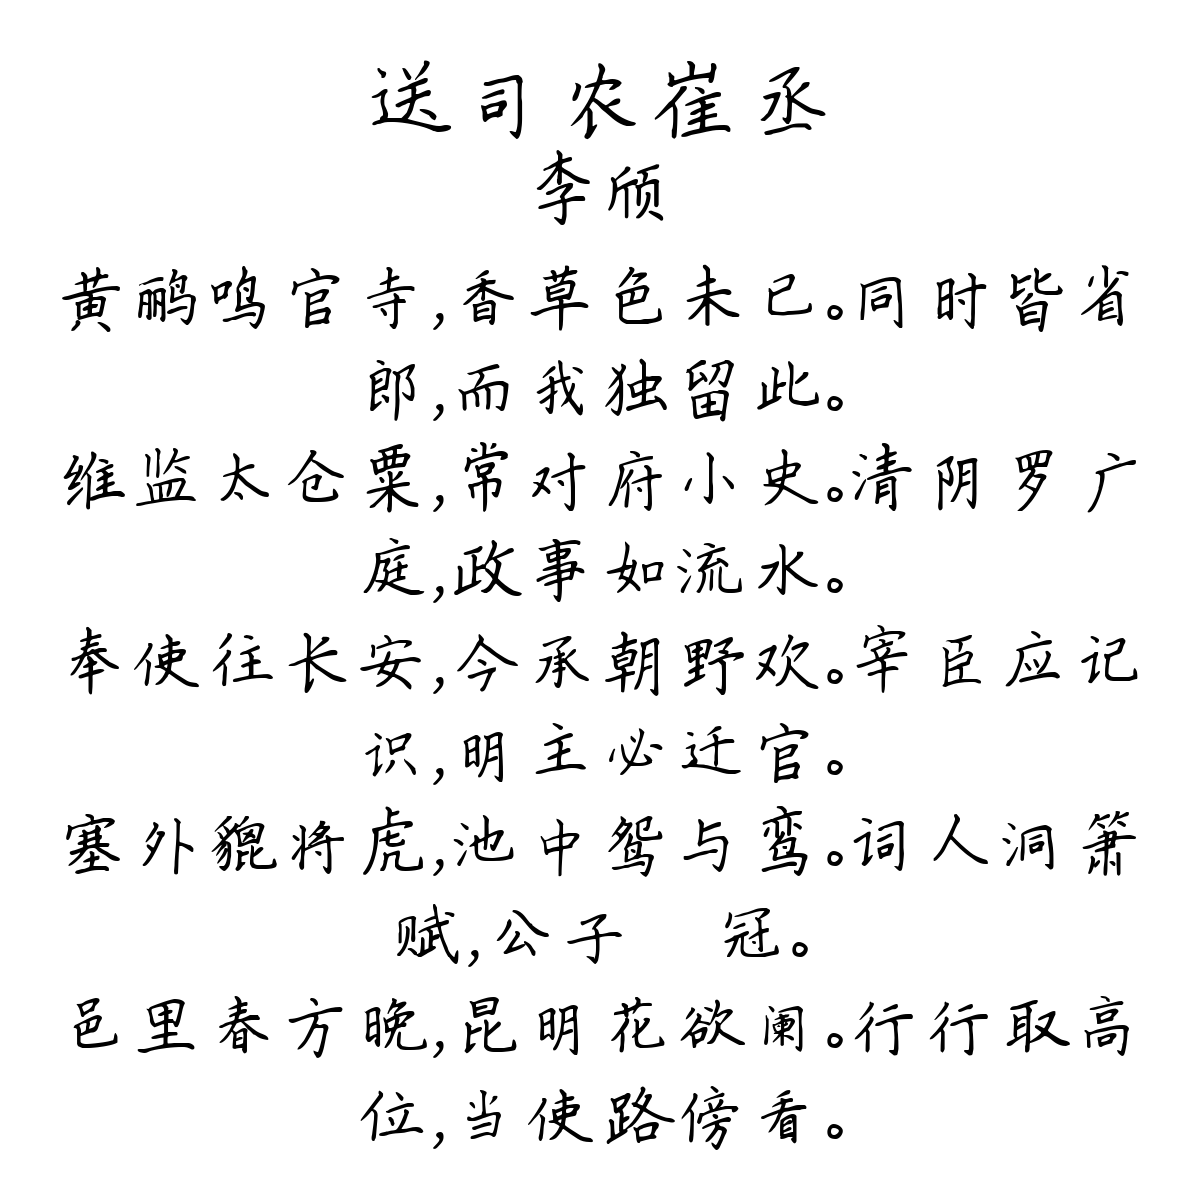 送司农崔丞
李颀
黄鹂鸣官寺,香草色未已。同时皆省
郎,而我独留此。
维监太仓粟,常对府小史。清阴罗广
庭,政事如流水。
奉使往长安,今承朝野欢。宰臣应记
识,明主必迁官。
塞外貔将虎,池中鸳与鸾。词人洞箫
赋,公子 冠。
邑里春方晚,昆明花欲阑。行行取高
位,当使路傍看。